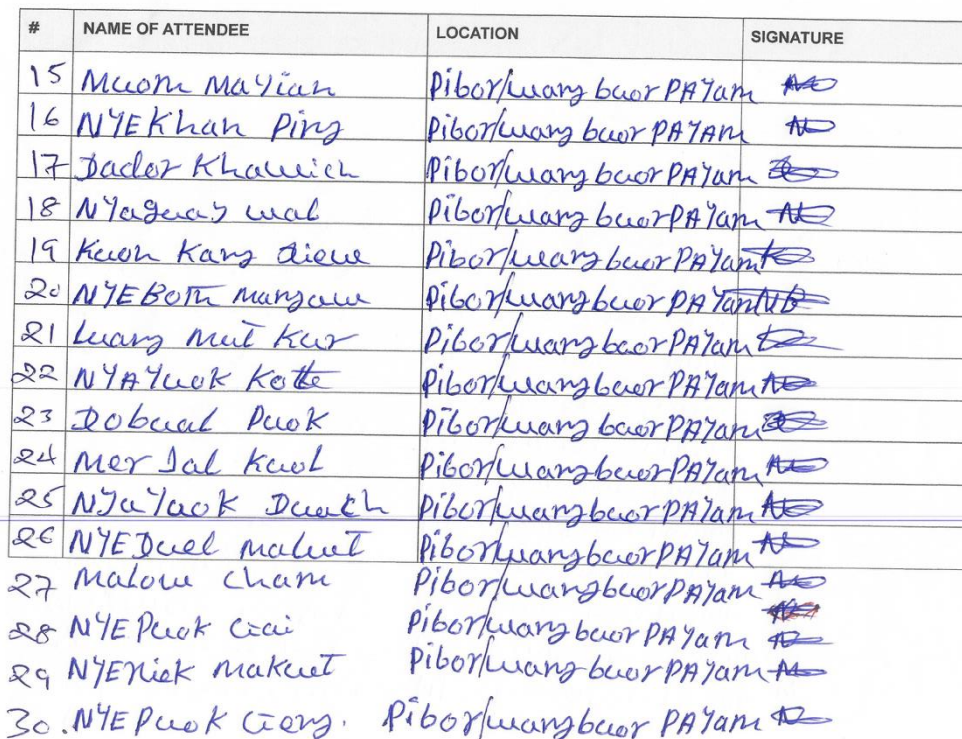 # NAME OF ATTENDEE LOCATION SIGNATURE
15 Muom Mayian Pibor/wang buor PAYam
16 NYEKhan Ping Pibor/wang buor PAYAM
17 Dador Khawich Pibor/wang buor PAYam
18 NYaguay wal Pibor/wang buor PAYam
19 Kuon Kang Pibor/wang buor PAYam
20 NYEBoth Mangaw Pibor/wang buor PAYam NB
21 Luang Mut Kur Pibor/wang buor PAYam
22 NYAYuok Kotte Pibor/wang buor PAYam
23 Dobual Puok Pibor/wang buor PAYam
24 Mer Jal Kuol Pibor/wang buor PAYam
25 NYaYuok Duach Pibor/wang buor PAYam
26 NYEDuel Maluet Pibor/wang buor PAYam
27 Malow Cham Pibor/wang buor PAYam
28 NYEPuok Pibor/wang buor PAYam
29 NYERiek Makuet Pibor/wang buor PAYam
30. NYEPuok Pibor/wang buor PAYam